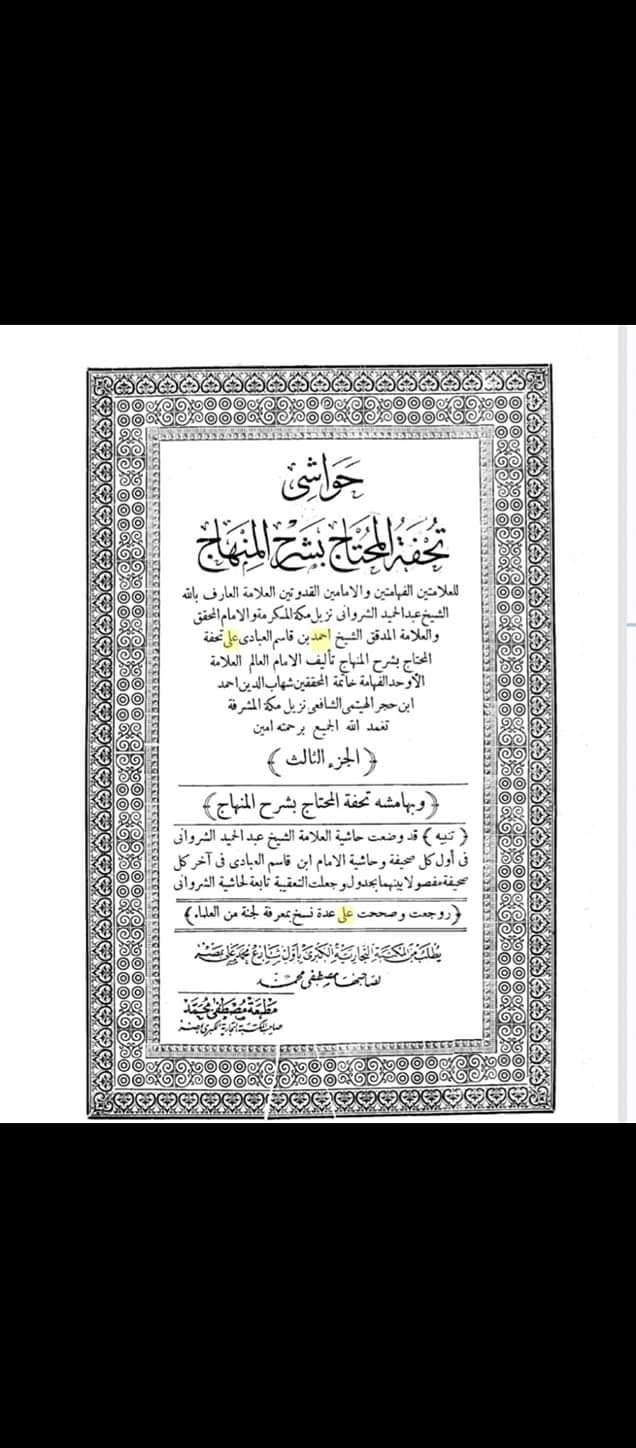 حَوَاشِى
تُحْفَةُ المُحْتَاجِ بِشَرْحِ المِنْهَاجِ
للعلامتين الفهامتين والامامين القدوتين العلامة العارف بالله
الشيخ عبد الحميد الشروانى نزيل مكة المكرمة والامام المحقق
والعلامة المدقق الشيخ احمد بن قاسم العبادى على تحفة
المحتاج بشرح المنهاج تأليف الامام العالم العلامة
الأوحد الفهامة خاتمة المحققين شهاب الدين احمد
ابن حجر الهيتمى الشافعى نزيل مكة المشرفة
تغمد الله الجميع برحمته امين
﴿ الجزء الثالث ﴾
﴿ وبهامشه تحفة المحتاج بشرح المنهاج ﴾
﴿ تنبيه ﴾ قد وضعت حاشية العلامة الشيخ عبد الحميد الشروانى
فى أول كل صحيفة وحاشية الامام ابن قاسم العبادى فى آخر كل
صحيفة مفصولا بينهما بجدول وجعلت التعقيبة تابعة لحاشية الشروانى
﴿ روجعت وصححت على عدة نسخ بمعرفة لجنة من العلماء ﴾
يُطْلَبُ مِنَ المكتَبَةِ التِّجَارِيَّةِ الكُبْرَى بِأَوَّلِ شَارِعِ مُحَمَّد عَلِى بمِصْرَ
لصاحبها مصطفى محمد
مَطْبَعَة مُصْطَفَى مُحَمَّد
صاحب المكتبة التجارية الكبرى بمصر